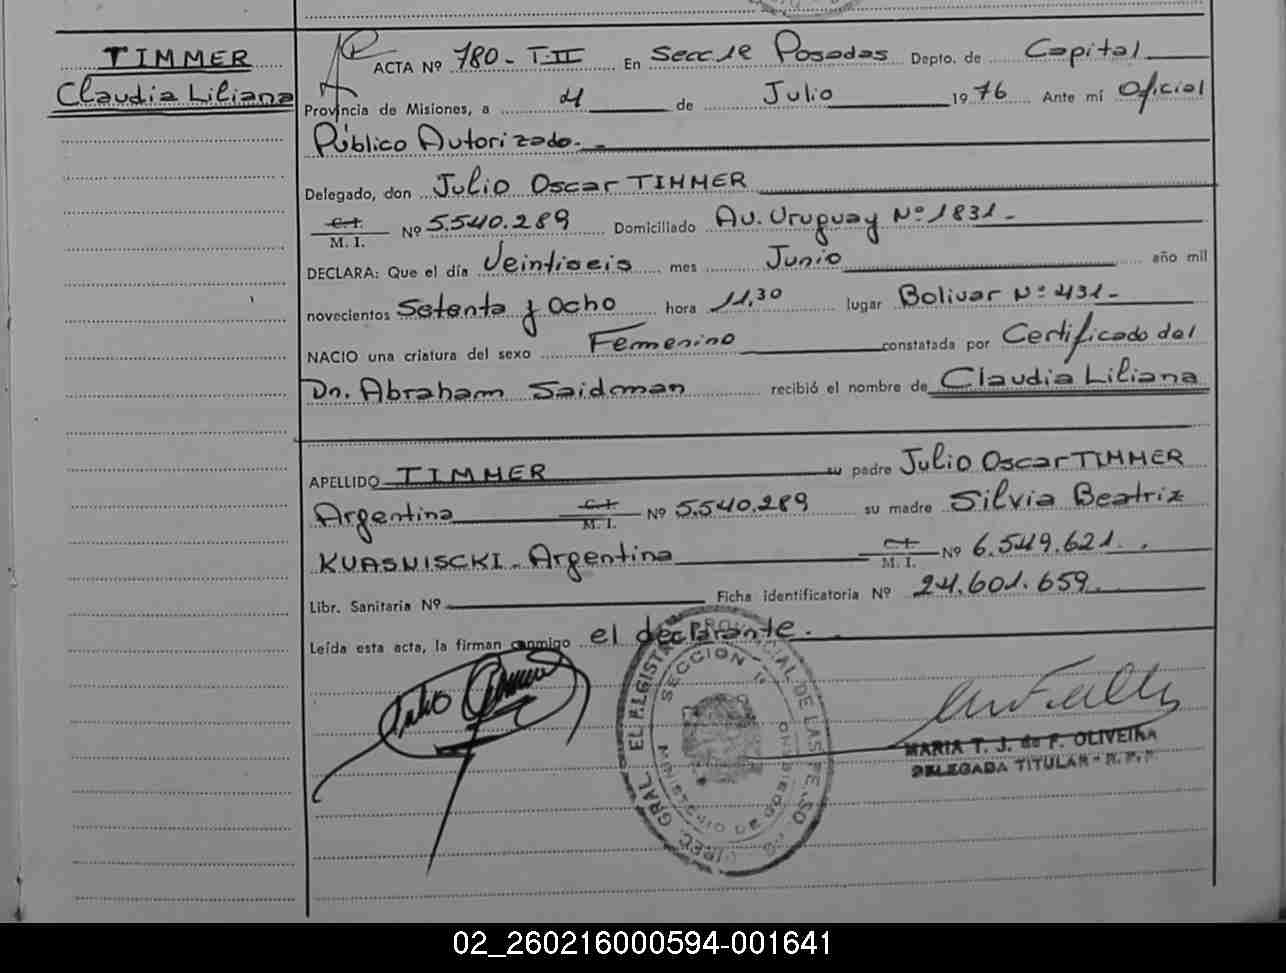 TIMMER
Claudia Liliana
ACTA Nº 780 - T-II En Secc 1ª Posadas Depto. de Capital
Provincia de Misiones, a 4 de Julio 1976 Ante mí Oficial
Público Autorizado. -
Delegado, don Julio Oscar TIMMER
C.I.
M. I. Nº 5.540.289 Domiciliado Av. Uruguay Nº 1831.-
DECLARA: Que el día Veintiseis mes Junio año mil
novecientos Setenta y Ocho hora 11,30 lugar Bolivar Nº 431.-
NACIO una criatura del sexo Femenino constatada por Certificado del
Dr. Abraham Saidman recibió el nombre de Claudia Liliana
APELLIDO TIMMER su padre Julio Oscar TIMMER
Argentina C.I. M. I. Nº 5.540.289 su madre Silvia Beatriz
KUASNISCKI - Argentina C.I. M. I. Nº 6.549.621.
Libr. Sanitaria Nº Ficha identificatoria Nº 24.601.659.
Leída esta acta, la firman conmigo el declarante.
SECCION 1ª
MARIA T. J. de F. OLIVEIRA
DELEGADA TITULAR - R. P. P.
02_260216000594-001641